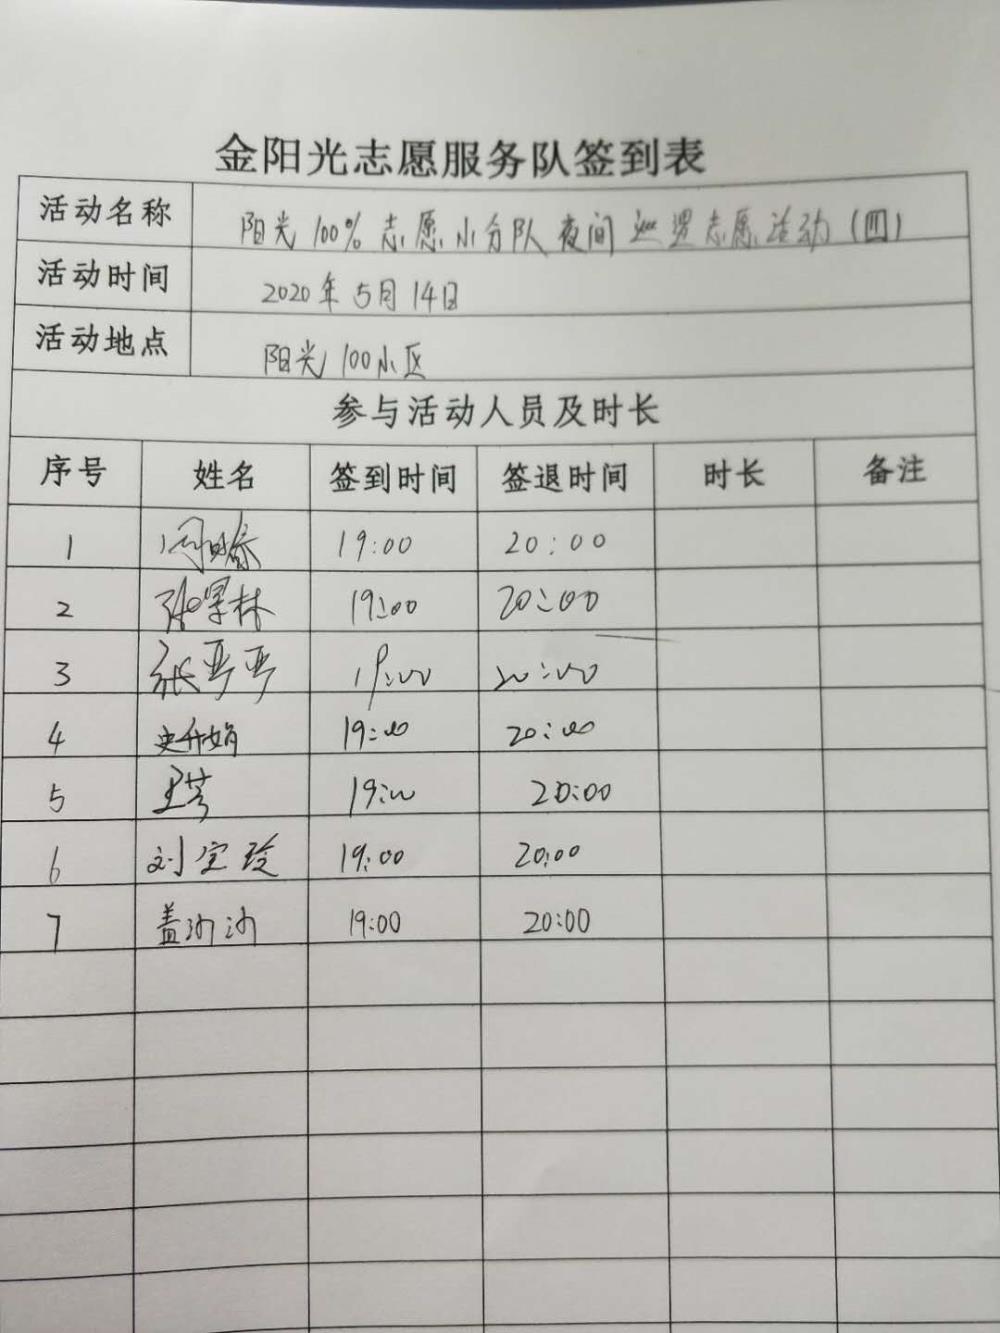 金阳光志愿服务队签到表
活动名称 阳光100%志愿小分队夜间巡逻志愿活动(四)
活动时间 2020年5月14日
活动地点 阳光100小区
参与活动人员及时长
序号 姓名 签到时间 签退时间 时长 备注
1 19:00 20:00
2 19:00 20:00
3 张 19:00 20:00
4 史丹娟 19:00 20:00
5 王芳 19:00 20:00
6 刘宝玲 19:00 20:00
7 盖沙沙 19:00 20:00